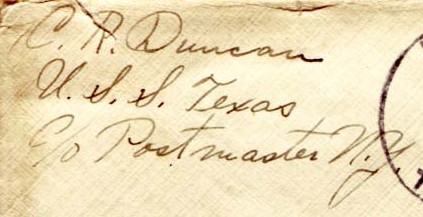 C. R. Duncan
U. S. S. Texas
c/o Postmaster N.Y.